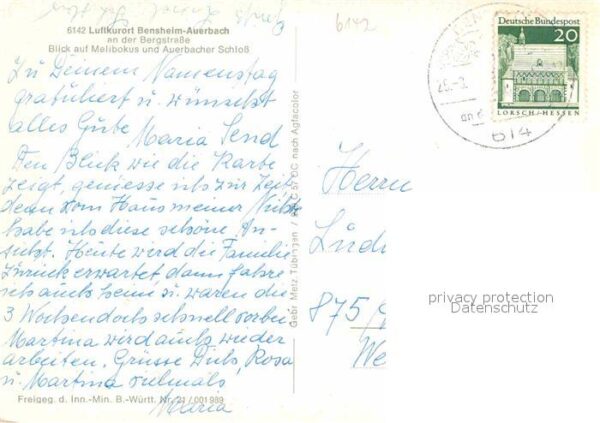 6142
6142 Luftkurort Bensheim-Auerbach
an der Bergstraße
Blick auf Melibokus und Auerbacher Schloß
Zu Deinem Namenstag
gratuliert u. wünscht
alles Gute
Maria Send
Den Blick wie die Karte
zeigt, geniesse ich zur Zeit
denn vom Haus meiner Nichte
habe ich diese schöne An-
sicht. Heute wird die Familie
zurück erwartet dann fahre
ich auch heim u. waren die
3 Wochen doch schnell vorbei
Martina wird auch wieder
arbeiten. Grüsse Dich, Rosa
u. Martina vielmals
Maria
Freigeg. d. Inn.-Min. B.-Württ. Nr. 21/001989
Gebr. Metz Tübingen
OC nach Agfacolor
Deutsche Bundespost
20
LORSCH/HESSEN
614
Herrn
875
privacy protection
Datenschutz